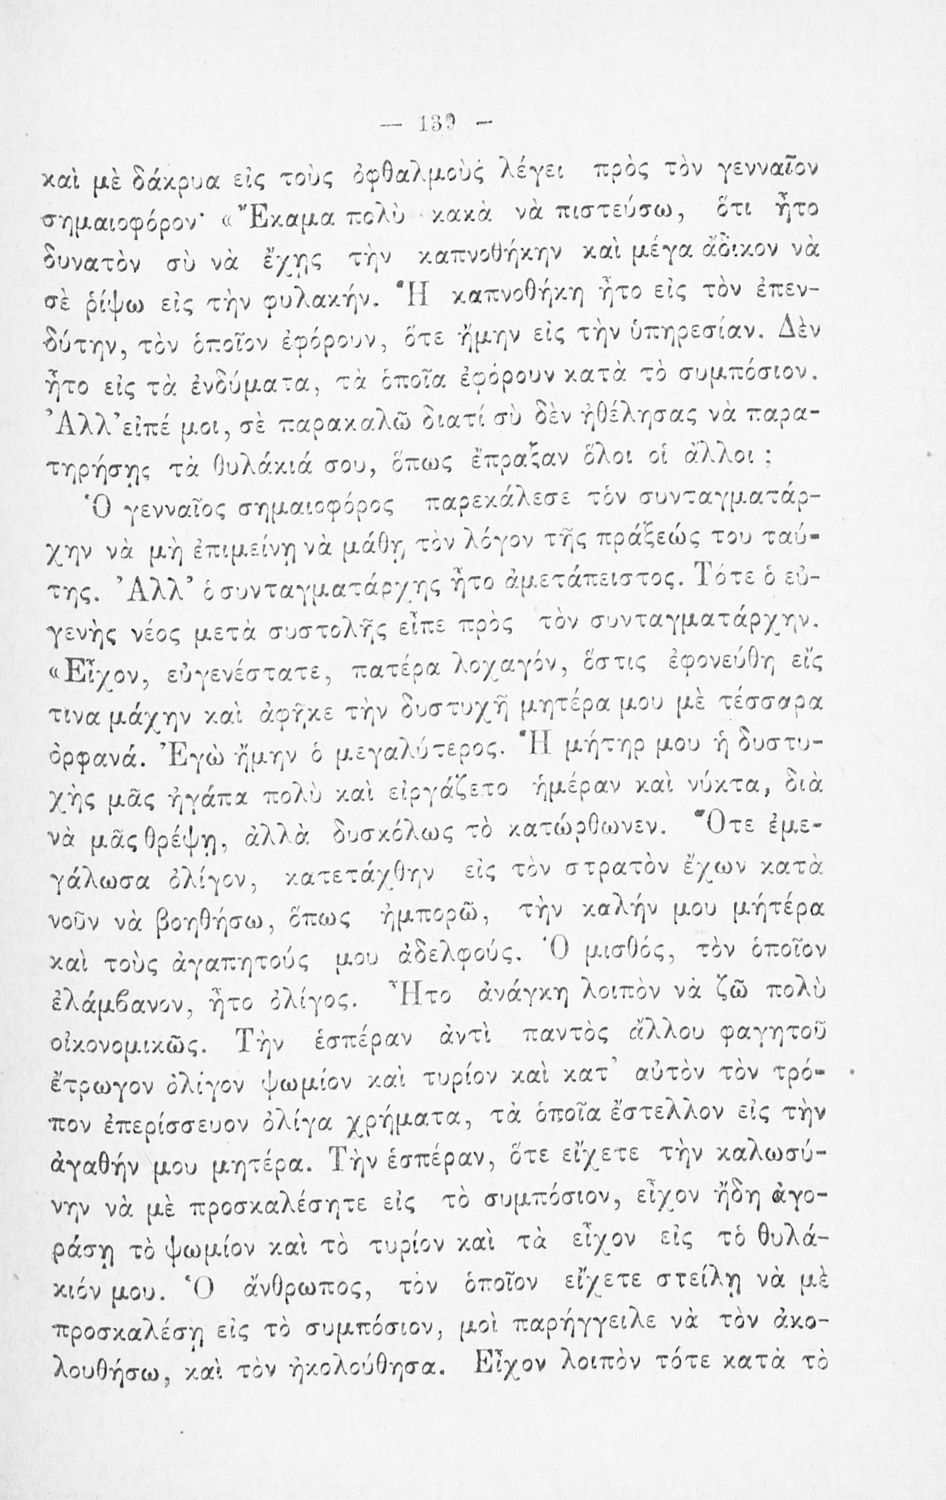 — 139 —
καὶ μὲ δάκρυα εἰς τοὺς ὀφθαλμοὺς λέγει πρὸς τὸν γενναῖον
σημαιοφόρον· «Ἔκαμα πολὺ κακὰ νὰ πιστεύσω, ὅτι ἦτο
δυνατὸν σὺ νὰ ἔχῃς τὴν καπνοθήκην καὶ μέγα ἄδικον νὰ
σὲ ῥίψω εἰς τὴν φυλακήν. Ἡ καπνοθήκη ἦτο εἰς τὸν ἐπεν-
δύτην, τὸν ὁποῖον ἐφόρουν, ὅτε ἤμην εἰς τὴν ὑπηρεσίαν. Δὲν
ἦτο εἰς τὰ ἐνδύματα, τὰ ὁποῖα ἐφόρουν κατὰ τὸ συμπόσιον.
Ἀλλ’ εἰπέ μοι, σὲ παρακαλῶ διατί σὺ δὲν ἠθέλησας νὰ παρα-
τηρήσῃς τὰ θυλάκιά σου, ὅπως ἔπραξαν ὅλοι οἱ ἄλλοι ;
Ὁ γενναῖος σημαιοφόρος παρεκάλεσε τὸν συνταγματάρ-
χην νὰ μὴ ἐπιμείνῃ νὰ μάθῃ τὸν λόγον τῆς πράξεώς του ταύ-
της. Ἀλλ’ ὁ συνταγματάρχης ἦτο ἀμετάπειστος. Τότε ὁ εὐ-
γενὴς νέος μετὰ συστολῆς εἶπε πρὸς τὸν συνταγματάρχην.
«Εἶχον, εὐγενέστατε, πατέρα λοχαγόν, ὅστις ἐφονεύθη εἴς
τινα μάχην καὶ ἀφῆκε τὴν δυστυχῆ μητέρα μου μὲ τέσσαρα
ὀρφανά. Ἐγὼ ἤμην ὁ μεγαλύτερος. Ἡ μήτηρ μου ἡ δυστυ-
χὴς μᾶς ἠγάπα πολὺ καὶ εἰργάζετο ἡμέραν καὶ νύκτα, διὰ
νὰ μᾶς θρέψῃ, ἀλλὰ δυσκόλως τὸ κατώρθωνεν. Ὅτε ἐμε-
γάλωσα ὀλίγον, κατετάχθην εἰς τὸν στρατὸν ἔχων κατὰ
νοῦν νὰ βοηθήσω, ὅπως ἠμπορῶ, τὴν καλήν μου μήτέρα
καὶ τοὺς ἀγαπητούς μου ἀδελφούς. Ὁ μισθός, τὸν ὁποῖον
ἐλάμβανον, ἦτο ὀλίγος. Ἦτο ἀνάγκη λοιπὸν νὰ ζῶ πολὺ
οἰκονομικῶς. Τὴν ἑσπέραν ἀντὶ παντὸς ἄλλου φαγητοῦ
ἔτρωγον ὀλίγον ψωμίον καὶ τυρίον καὶ κατ’ αὐτὸν τὸν τρό-
πον ἐπερίσσευον ὀλίγα χρήματα, τὰ ὁποῖα ἔστελλον εἰς τὴν
ἀγαθήν μου μητέρα. Τὴν ἑσπέραν, ὅτε εἴχετε τὴν καλωσύ-
νην νὰ μὲ προσκαλέσητε εἰς τὸ συμπόσιον, εἶχον ἤδη ἀγο-
ράσῃ τὸ ψωμίον καὶ τὸ τυρίον καὶ τὰ εἶχον εἰς τὸ θυλά-
κιόν μου. Ὁ ἄνθρωπος, τὸν ὁποῖον εἴχετε στείλῃ νὰ μὲ
προσκαλέσῃ εἰς τὸ συμπόσιον, μοὶ παρήγγειλε νὰ τὸν ἀκο-
λουθήσω, καὶ τὸν ἠκολούθησα. Εἶχον λοιπὸν τότε κατὰ τὸ